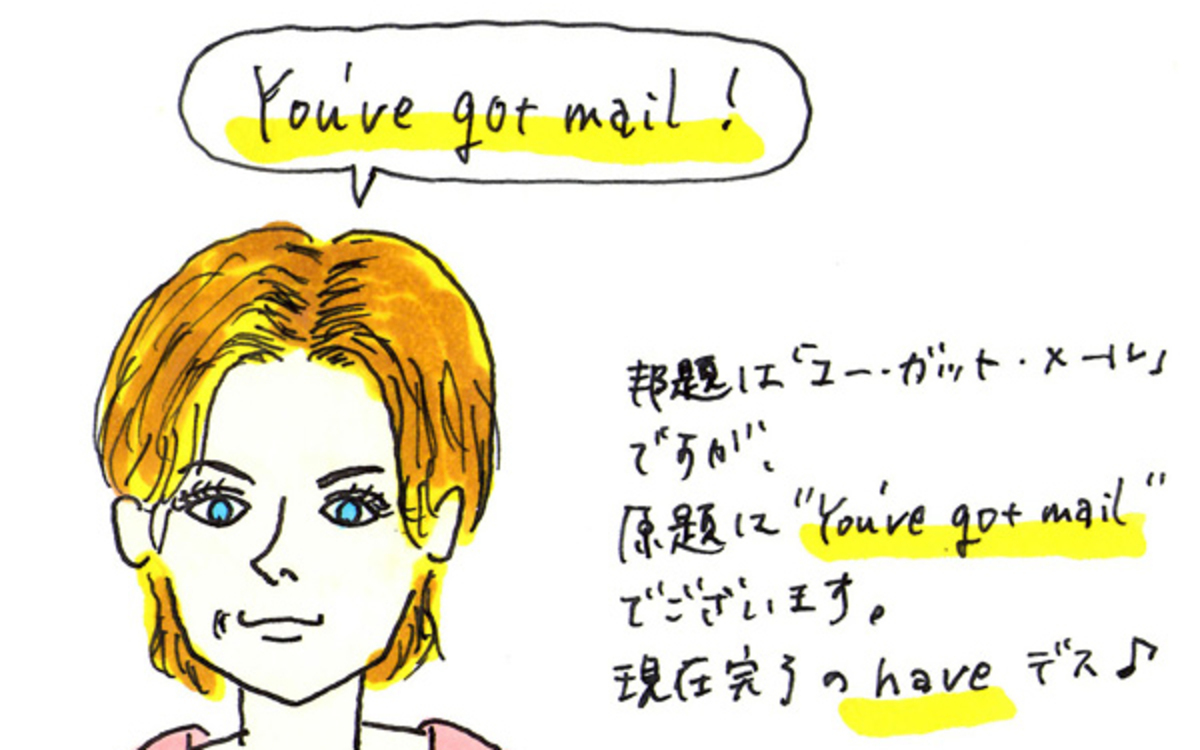 You've got mail!
邦題は「ユー・ガット・メール」
ですが、
原題は "You've got mail"
でございます。
現在完了の have デス♪